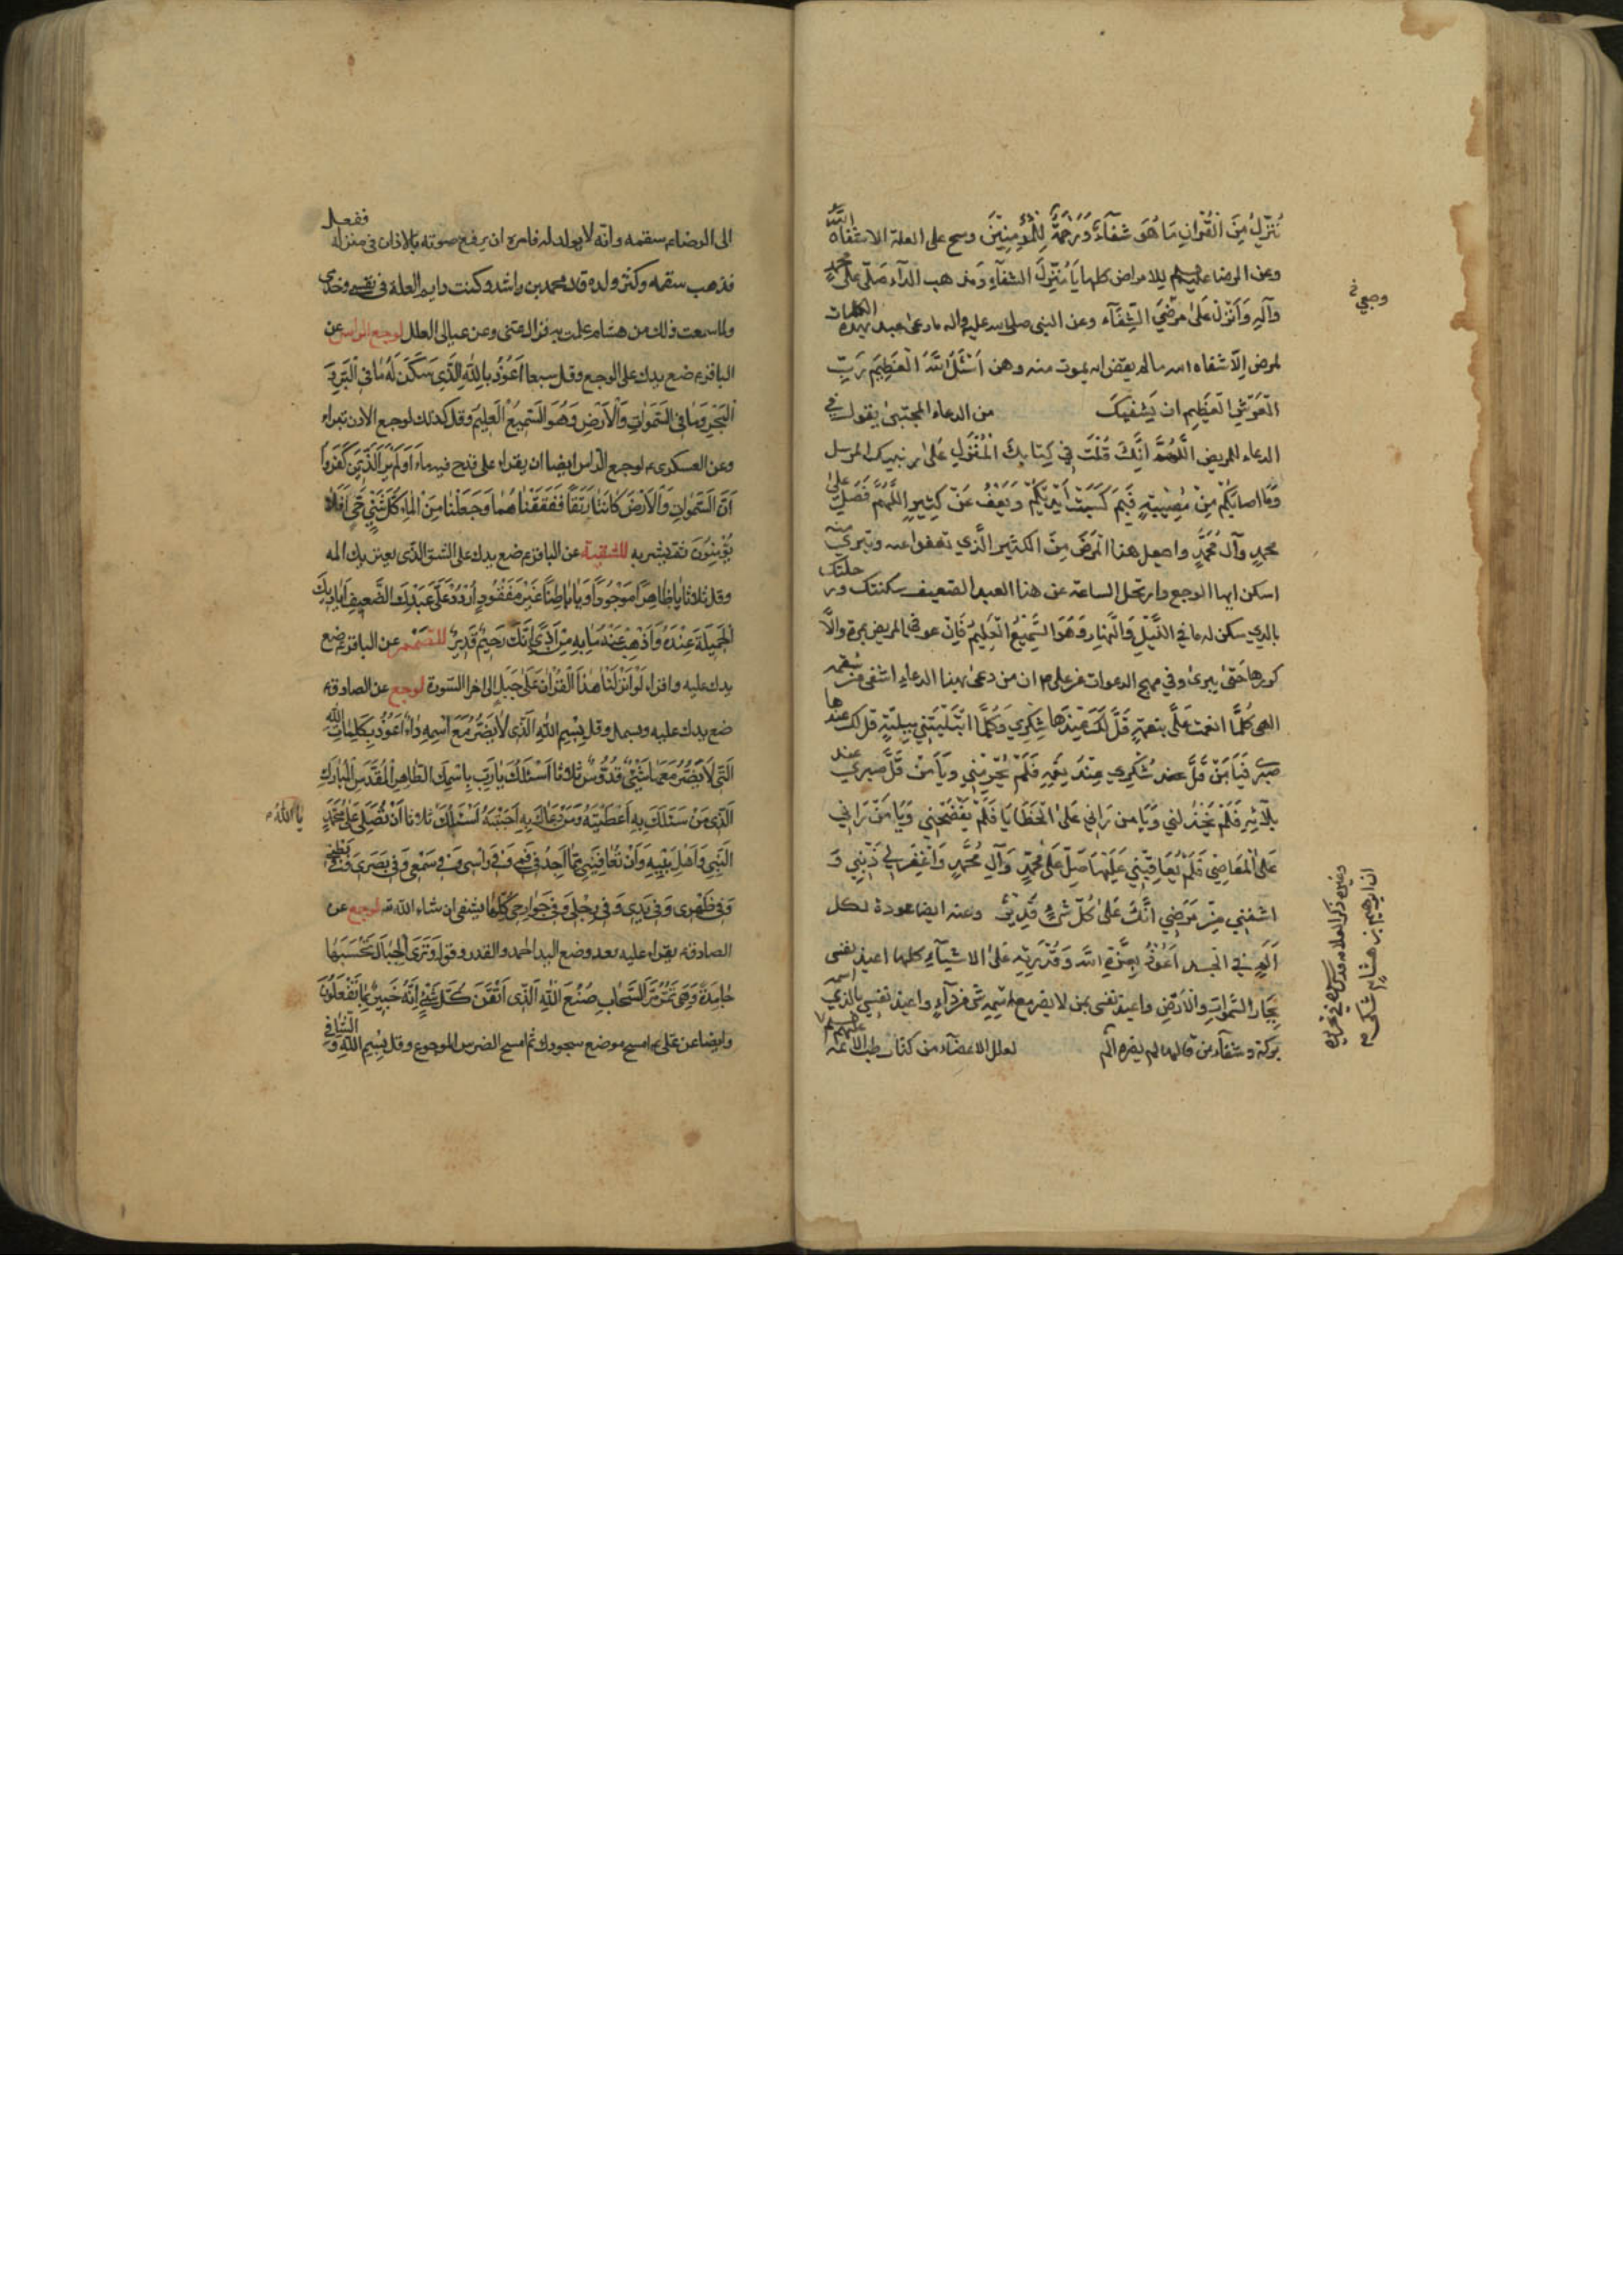 نُنَزِّلُ مِنَ الْقُرْآنِ مَا هُوَ شِفَآءٌ وَرَحْمَةٌ لِلْمُؤْمِنِينَ ومسح على العلة الا شفاه اللَّه
وعن الرضا عليه السلم للامراض كلها يَا مُنَزِّلَ الشفآءِ وَمذهب الدآء صَلِّ على محمد
وَآلِهِ وَأَنْزِلْ عَلى مَرَضِيَ الشِّفَآء وعن النبي صلى الله عليه واله ما دعى عبد بهذه الكلمات
لمريض اِلَّا شفاه الله ما لم يقض انه يموت منه وهن اَسْئَلُ اللَّهَ الْعَظِيمَ رَبِّ
الْعَرْشِ الْعَظِيمِ ان يَشْفِيَكَ من الدعاء المجتبى يقول في
الدعاء للمريض اَللّهُمَّ اِنَّكَ قُلْتَ فِي كِتَابِكَ الْمُنْزَلِ عَلى نبيك المرسل
وَمَا اصابَكُمْ مِنْ مُصِيبَةٍ فَبِمَا كَسَبَتْ اَيْدِيكُمْ وَيَعْفُ عَنْ كَثِيرٍ اَللّهُمَّ فَصَلِّ على
محمدٍ وَآل مُحَمَّدٍ واجعل هذا الْمَرَضَ مِنَ الكثير الَّذي تعفو عنه وتبري منه
اسكن ايها الوجع وارتحل الساعة عن هذا العبد الضعيف سكنتك ورحلتك
بالذي سكن له ما في اللَّيْلِ وَالنَّهار وَهُوَ السَّمِيعُ الْعَلِيمُ فَاِنْ عوفى المريض بمرة واِلَّا
كررها حَتّى يبرئ وفي مهج الدعوات عن على م ان من دعى بهذا الدعاءِ اشفى من سقمه
الهى كُلَّمَا انعمت عَلَىَّ بنعمةٍ قَلَّ لَكَ عِنْدَهَا شُكْرِي وَكُلَّمَا ابْتَلَيْتَنِي بِبَلِيَّةٍ قل لك عندها
صبرى فَيَا مَنْ قَلَّ شُكْرِي عِنْدَ نِعَمِهِ فَلَمْ يَحْرِمْنِي وَيَا مَنْ قَلَّ صَبري عند
بلآئِهِ فَلَمْ يَخْذُلني وَيَا من رَانِي عَلَى الْخَطَايَا فَلَمْ يَفْضَحْنِي وَيَا مَنْ رَانِي
عَلَى الْمَعَاصِي فَلَمْ يُعَاقِبْنِي عَلَيْهَا صَلِّ عَلى مُحَمَّدٍ وَآلِ مُحَمَّدٍ وَاغْفِرْ لِي ذَنْبِي وَ
اشفنِي مِنْ مَرَضِي اِنَّكَ عَلى كُلِّ شَىْءٍ قَدِيرٌ وعنه ايضا عوذة لكل
اَلَمٍ فِي الجسد اَعُوْذُ بِعِزَّةِ اللَّه وَقُدْرَتِهِ عَلى الاشيآءِ كلها اعيذ نفسى
بِجَبّار السَّمواتِ وَالْاَرْضِ واعيذ نفسى بمن لا يضر مع اسْمِهِ شَىْء من دآءٍ واعيذ نفسِي بالذي اسمه
بركة وشفآء من قالها لم يضره الم لعلل الاعضآء من كتاب طب الائمة عليهم السلم
وجعي خ
الى الرضاء سقمه وانه لا يولد له فامره ان يرفع صوته بالاذان في منزله ففعل
فذهب سقمه وكثر ولده قال محمد بن راشد وكنت دايم العلة فى نفسى وخدمى
ولما سمعت ذلك من هشام علمت به فزال عنى وعن عيالى العلل لوجع الراس عن
الباقر ضع يدك على الوجع وقل سبعا اَعُوْذُ بِاللهِ الَّذِى سَكَنَ لَهُ مَا فِى الْبَرِّ وَ
الْبَحْرِ وَمَا فِى السَّمَواتِ وَالْاَرْضِ وَهُوَ السَّمِيعُ الْعَلِيمُ وقل كذلك لوجع الاذن تبراء
وعن العسكرى لوجع الراس ايضا ان يقراء على قدح فيه ماء اَوَلَمْ يَرَ الَّذِينَ كَفَرُوا
اَنَّ السَّمَواتِ وَالْاَرْضَ كَانَتَا رَتْقًا فَفَتَقْنَاهُمَا وَجَعَلْنَا مِنَ الْمَاءِ كُلَّ شَىْءٍ حَىٍّ اَفَلا
يُؤْمِنُونَ ثم يشربه للشقيقة عن الباقر ضع يدك على الشق الذى يعتريك المه
وقل ثلاثا يَا ظَاهِرًا مَوْجُودًا وَيَا بَاطِنًا غَيْرَ مَفْقُودٍ اُرْدُدْ عَلى عَبْدِكَ الضَّعِيفِ اَيَادِيكَ
الْجَمِيلَةَ عِنْدَهُ وَاَذْهِبْ عَنْهُ مَا بِهِ مِنْ اَذًى اِنَّكَ رَحِيمٌ قَدِيرٌ للصمم عن الباقر ضع
يدك عليه واقراء لَوْ اَنْزَلْنَا هٰذَا الْقُرْانَ عَلَى جَبَلٍ الى اخر السورة لوجع عن الصادق
ضع يدك عليه وبسمل وقل بِسْمِ اللهِ الَّذِى لَا يَضُرُّ مَعَ اسْمِهِ دَاءٌ اَعُوذُ بِكَلِمَاتِ اللهِ
الَّتِى لَا يَضُرُّ مَعَهَا شَىْءٌ قُدُّوسٌ ثلاثا اَسْئَلُكَ يَا رَبِّ بِاسْمِكَ الطَّاهِرِ الْمُقَدَّسِ الْمُبَارَكِ
الَّذِى مَنْ سَئَلَكَ بِهِ اَعْطَيْتَهُ وَمَنْ دَعَاكَ بِهِ اَجَبْتَهُ اَسْئَلُكَ ثلاثا اَنْ تُصَلِّىَ عَلى مُحَمَّدٍ
يا اللهُ
النَّبِىِّ وَاَهْلِ بَيْتِهِ وَاَنْ تُعَافِيَنِى مِمَّا اَجِدُ فِى فَمِى وَفِى رَاْسِى وَفِى سَمْعِى وَفِى بَصَرِى وَفِى بَطْنِى
وَفِى ظَهْرِى وَفِى يَدِى وَفِى رِجْلِى وَفِى جَوَارِحِى كُلِّهَا يشفى ان شاء الله لوجع عن
الصادق يقراء عليه بعد وضع اليد الحمد والقدر وقوله وَتَرَى الْجِبَالَ تَحْسَبُهَا
جَامِدَةً وَهِىَ تَمُرُّ مَرَّ السَّحَابِ صُنْعَ اللهِ الَّذِى اَتْقَنَ كُلَّ شَىْءٍ اِنَّهُ خَبِيرٌ بِمَا تَفْعَلُونَ
وايضا عن على امسح موضع سجودك ثم امسح الضرس الموجوع وقل بِسْمِ اللهِ وَالشَّافِى